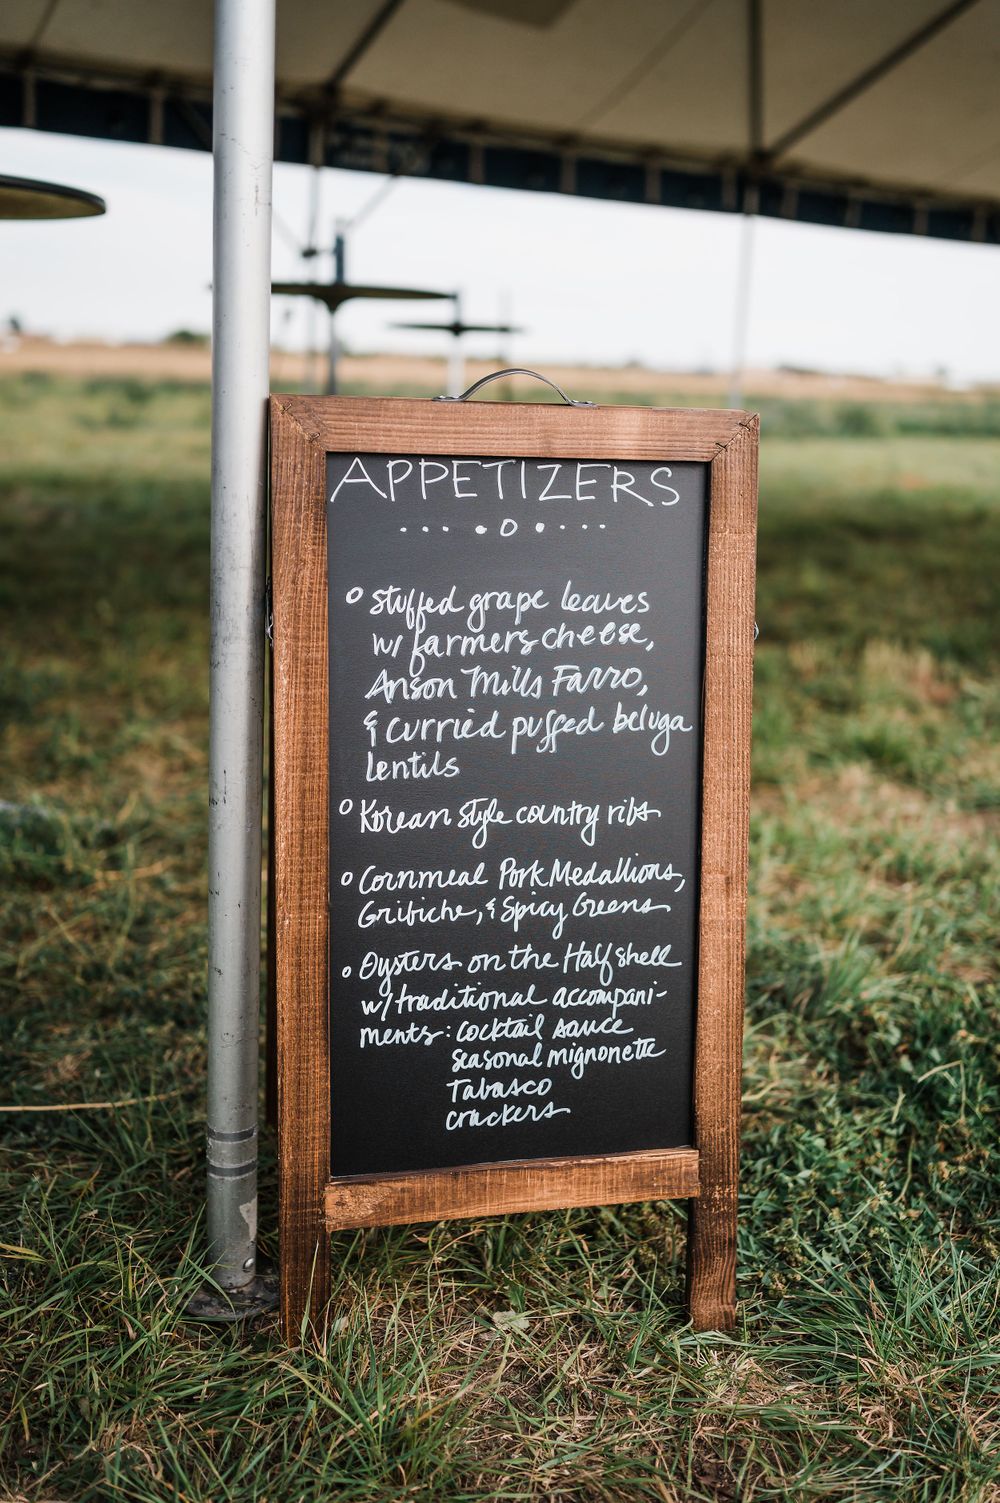 APPETIZERS
stuffed grape leaves
w/ farmers cheese,
Anson Mills Farro,
& curried puffed beluga
lentils
Korean style country ribs
Cornmeal Pork Medallions,
Gribiche, & Spicy Greens
Oysters on the Half shell
w/ traditional accompani-
ments: cocktail sauce
seasonal mignonette
Tabasco
crackers